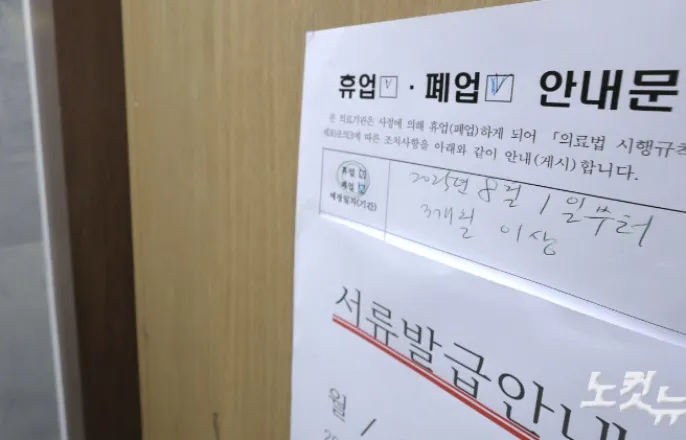 휴업 · 폐업 안내문
본 의료기관은 사정에 의해 휴업(폐업)하게 되어 「의료법 시행규칙
따른 조치사항을 아래와 같이 안내(게시)합니다.
휴업
폐업
예정일자(기간)
2025년 8월 1일부터
3개월 이상
서류발급안내
월 /
노컷뉴